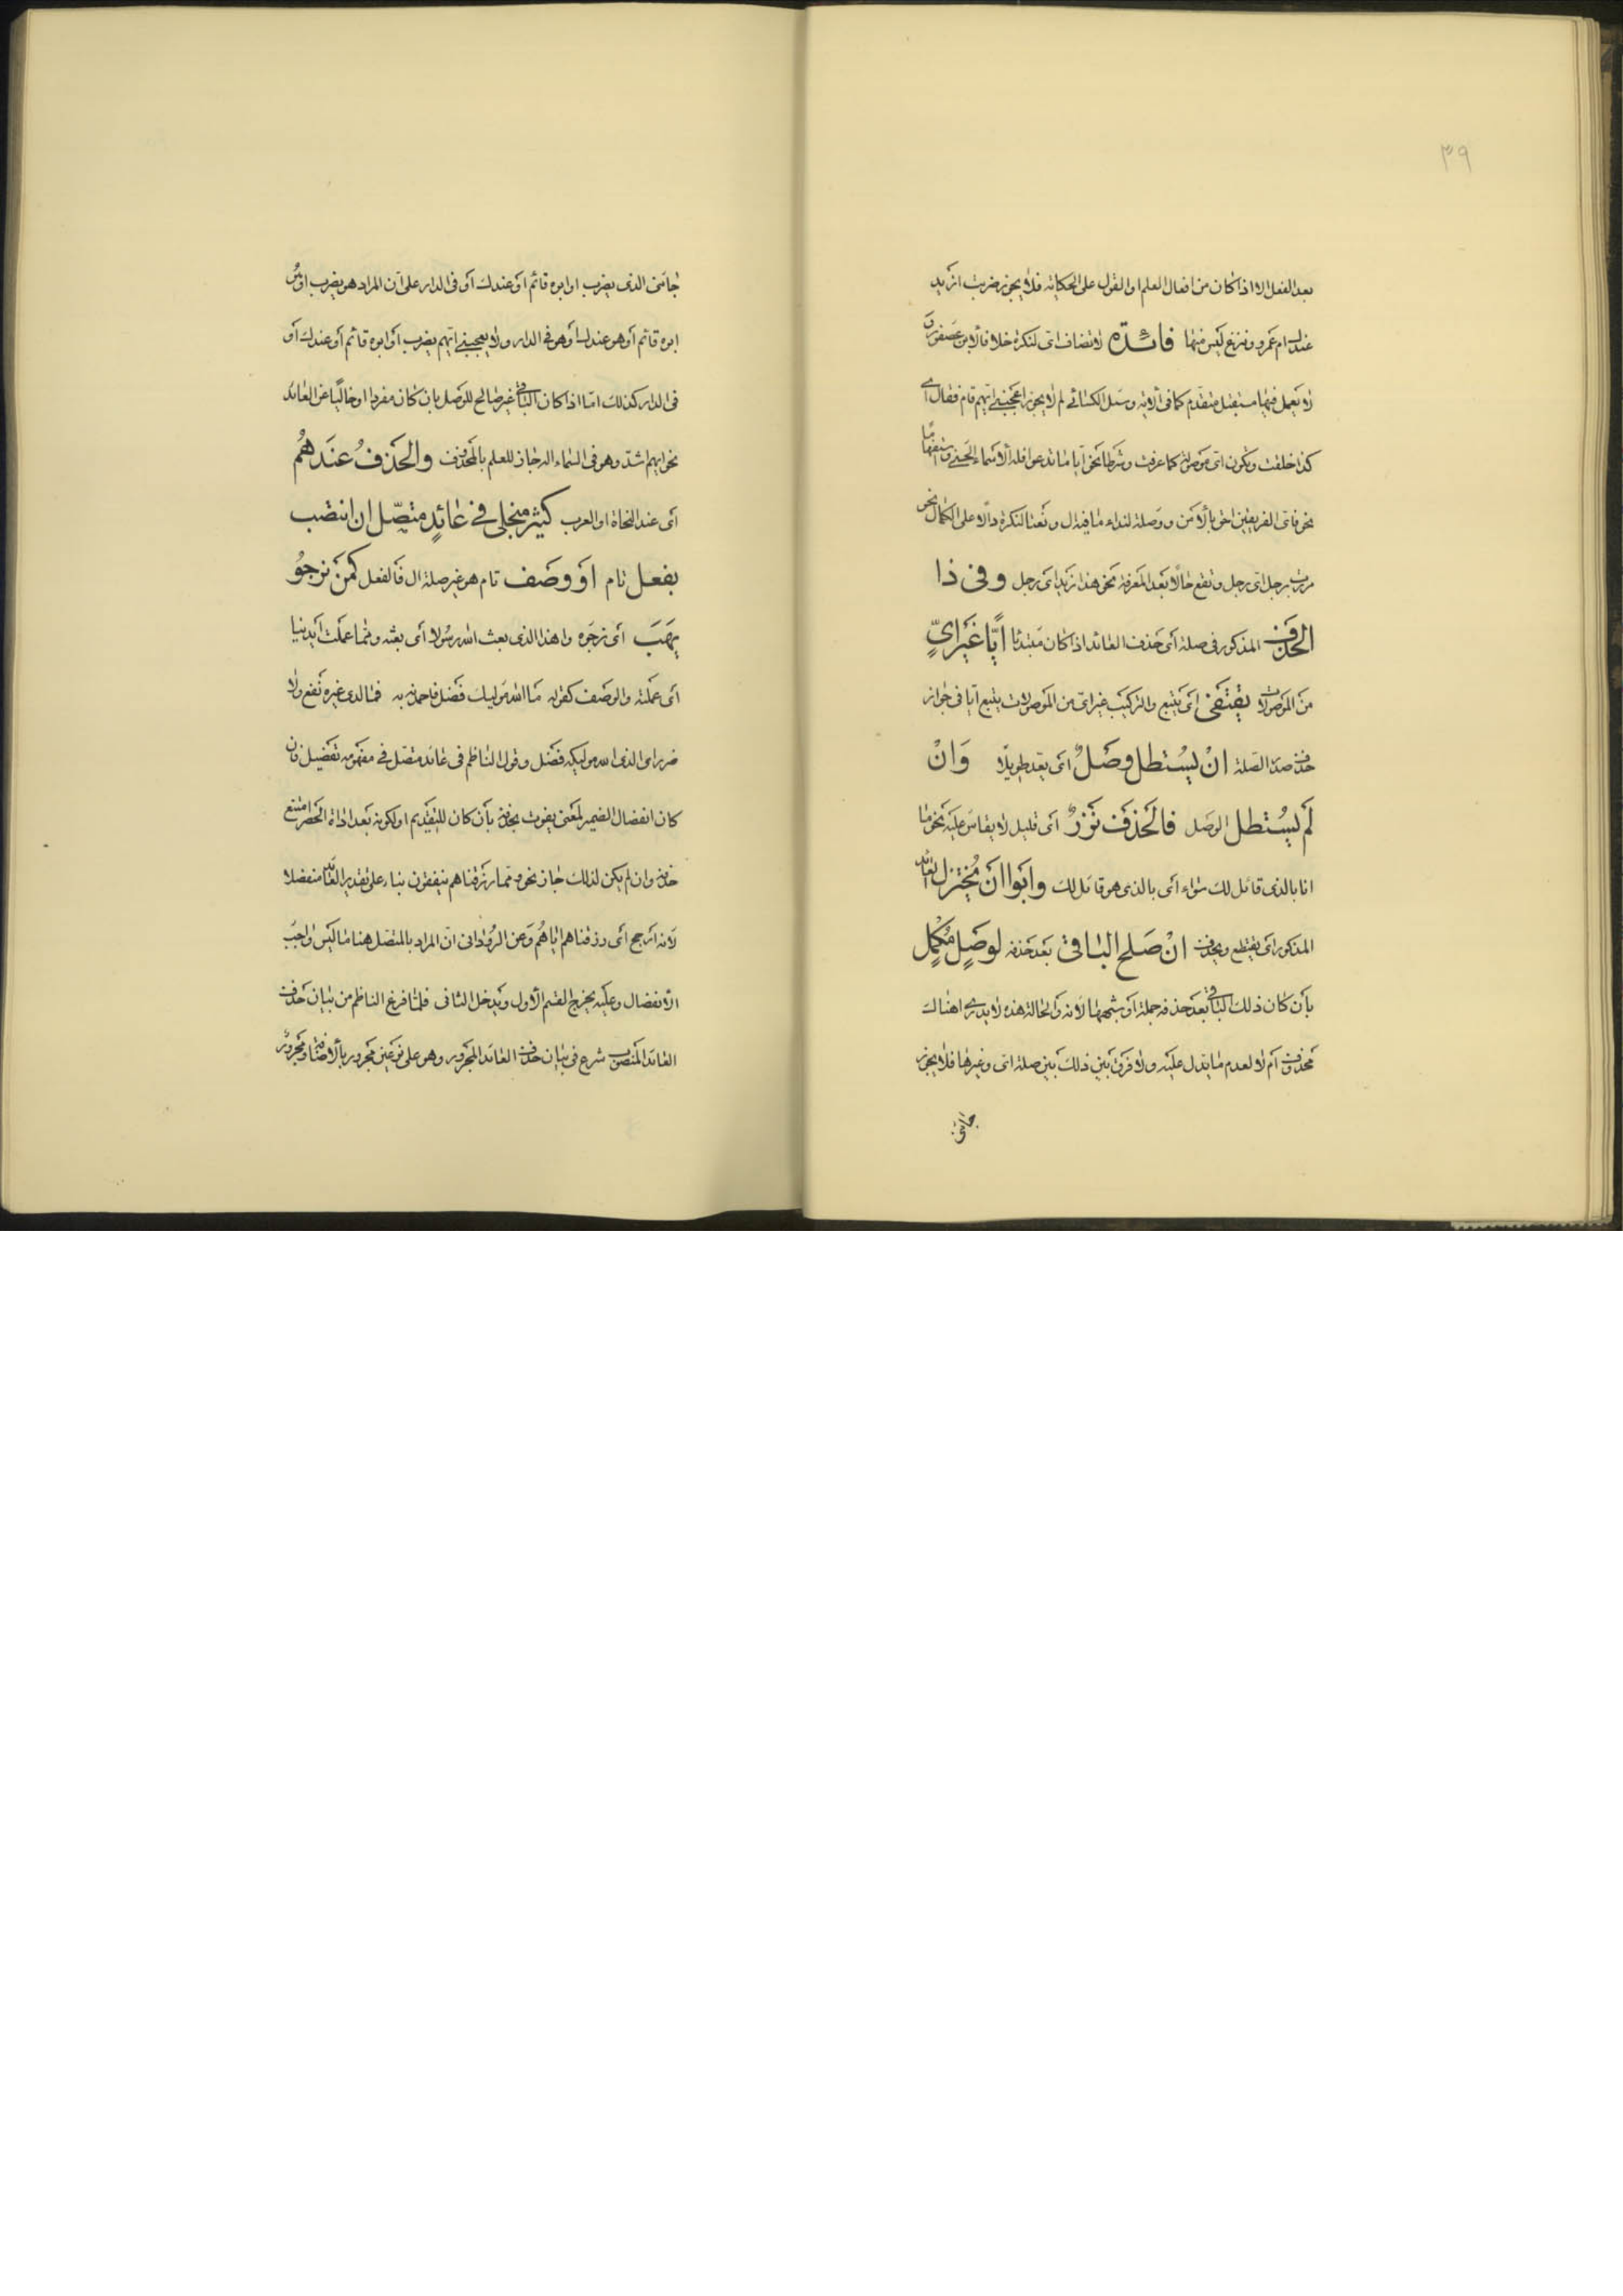 ٣٩
بعد الفعل الا اذا كان من افعال العلم او القول على الحكاية فلا يجوز ضربت ازيد
عندك ام عمرو وننزع ليس منها فائدة لا تضاف اى لنكرة خلافا لابن عصفور
لا يعمل فيها مستقبل متقدم كما فى الاية وسئل الكسائى لم لا يجوز اعجبنى ايهم قام فقال اى
كذا خلقت وتكون اى موصولة كما عرفت وشرطا نحو ايا ما تدعوا فله الاسماء الحسنى واستفهاما
نحو فاى الفريقين احق بالامن ووصلة لنداء ما فيه ال ونعتا لنكرة دالا على الكمال نحو
مررت برجل اى رجل وتقع حالا بعد المعرفة نحو هذا زيد اى رجل وفى ذا
الحذف المذكور فى صلة اى حذف العائد اذا كان مبتدئا ايا غير اى
من الموصولات يقتفى اى يتبع والتركيب غير اى من الموصولات يتبع ايا فى جواز
حذف صدر الصلة ان يستطل وصل اى يعد طويلا وان
لم يستطل الوصل فالحذف نزر اى قليل لا يقاس عليه نحو ما
انا بالذى قائل لك سواء اى بالذى هو قائل لك وابوا ان يختزل العائد
المذكور اى يقتطع ويحذف ان صلح الباقى بعد حذفه لوصل مكمل
بأن كان ذلك الباقى بعد حذفه جملة او شبهها لانه والحالة هذه لا يدرى اهناك
محذوف ام لا لعدم ما يدل عليه ولا فرق بين ذلك بين صلة اى وغيرها فلا يجوز
جائنى
جائنى الذى يضرب او ابوه قائم او عندك او فى الدار على ان المراد هو يضرب او هو
ابوه قائم او هو عندك او هو فى الدار ولا يعجبنى ايهم يضرب او ابوه قائم او عندك او
فى الدار كذلك اما اذا كان الباقى غير صالح للوصل بان كان مفردا او خاليا عن العائد
نحو ايهم اشد وهو فى السماء اله جاز للعلم بالمحذوف والحذف عندهم
اى عند النحاة او العرب كثير منجلى فى عائد متصل ان انتصب
بفعل تام او وصف تام هو غير صلة ال فالفعل كمن نرجو
يهب اى نرجوه واهذا الذى بعث الله رسولا اى بعثه ومما عملت ايدينا
اى عملته والوصف كقوله ما الله موليك فضل فاحمدنه به فما لدى غيره نفع ولا
ضرر اى الذى الله موليكه فضل وقول الناظم فى عائد متصل فى مفهومه تفصيل فان
كان انفصال الضمير لمعنى يفوت بحذفه بأن كان للتقديم او لكونه بعد اداة الحصر امتنع
حذفه وان لم يكن لذلك جاز نحو ومما رزقناهم ينفقون بناء على تقدير العائد منفصلا
لانه ارجح اى رزقناهم اياهم وعن الرودانى ان المراد بالمتصل هنا ما ليس واجب
الانفصال وعليه يخرج القسم الاول ويدخل الثانى فلما فرغ الناظم من بيان حذف
العائد المنصوب شرع فى بيان حذف العائد المجرور وهو على نوعين مجرور بالاضافة ومجرور